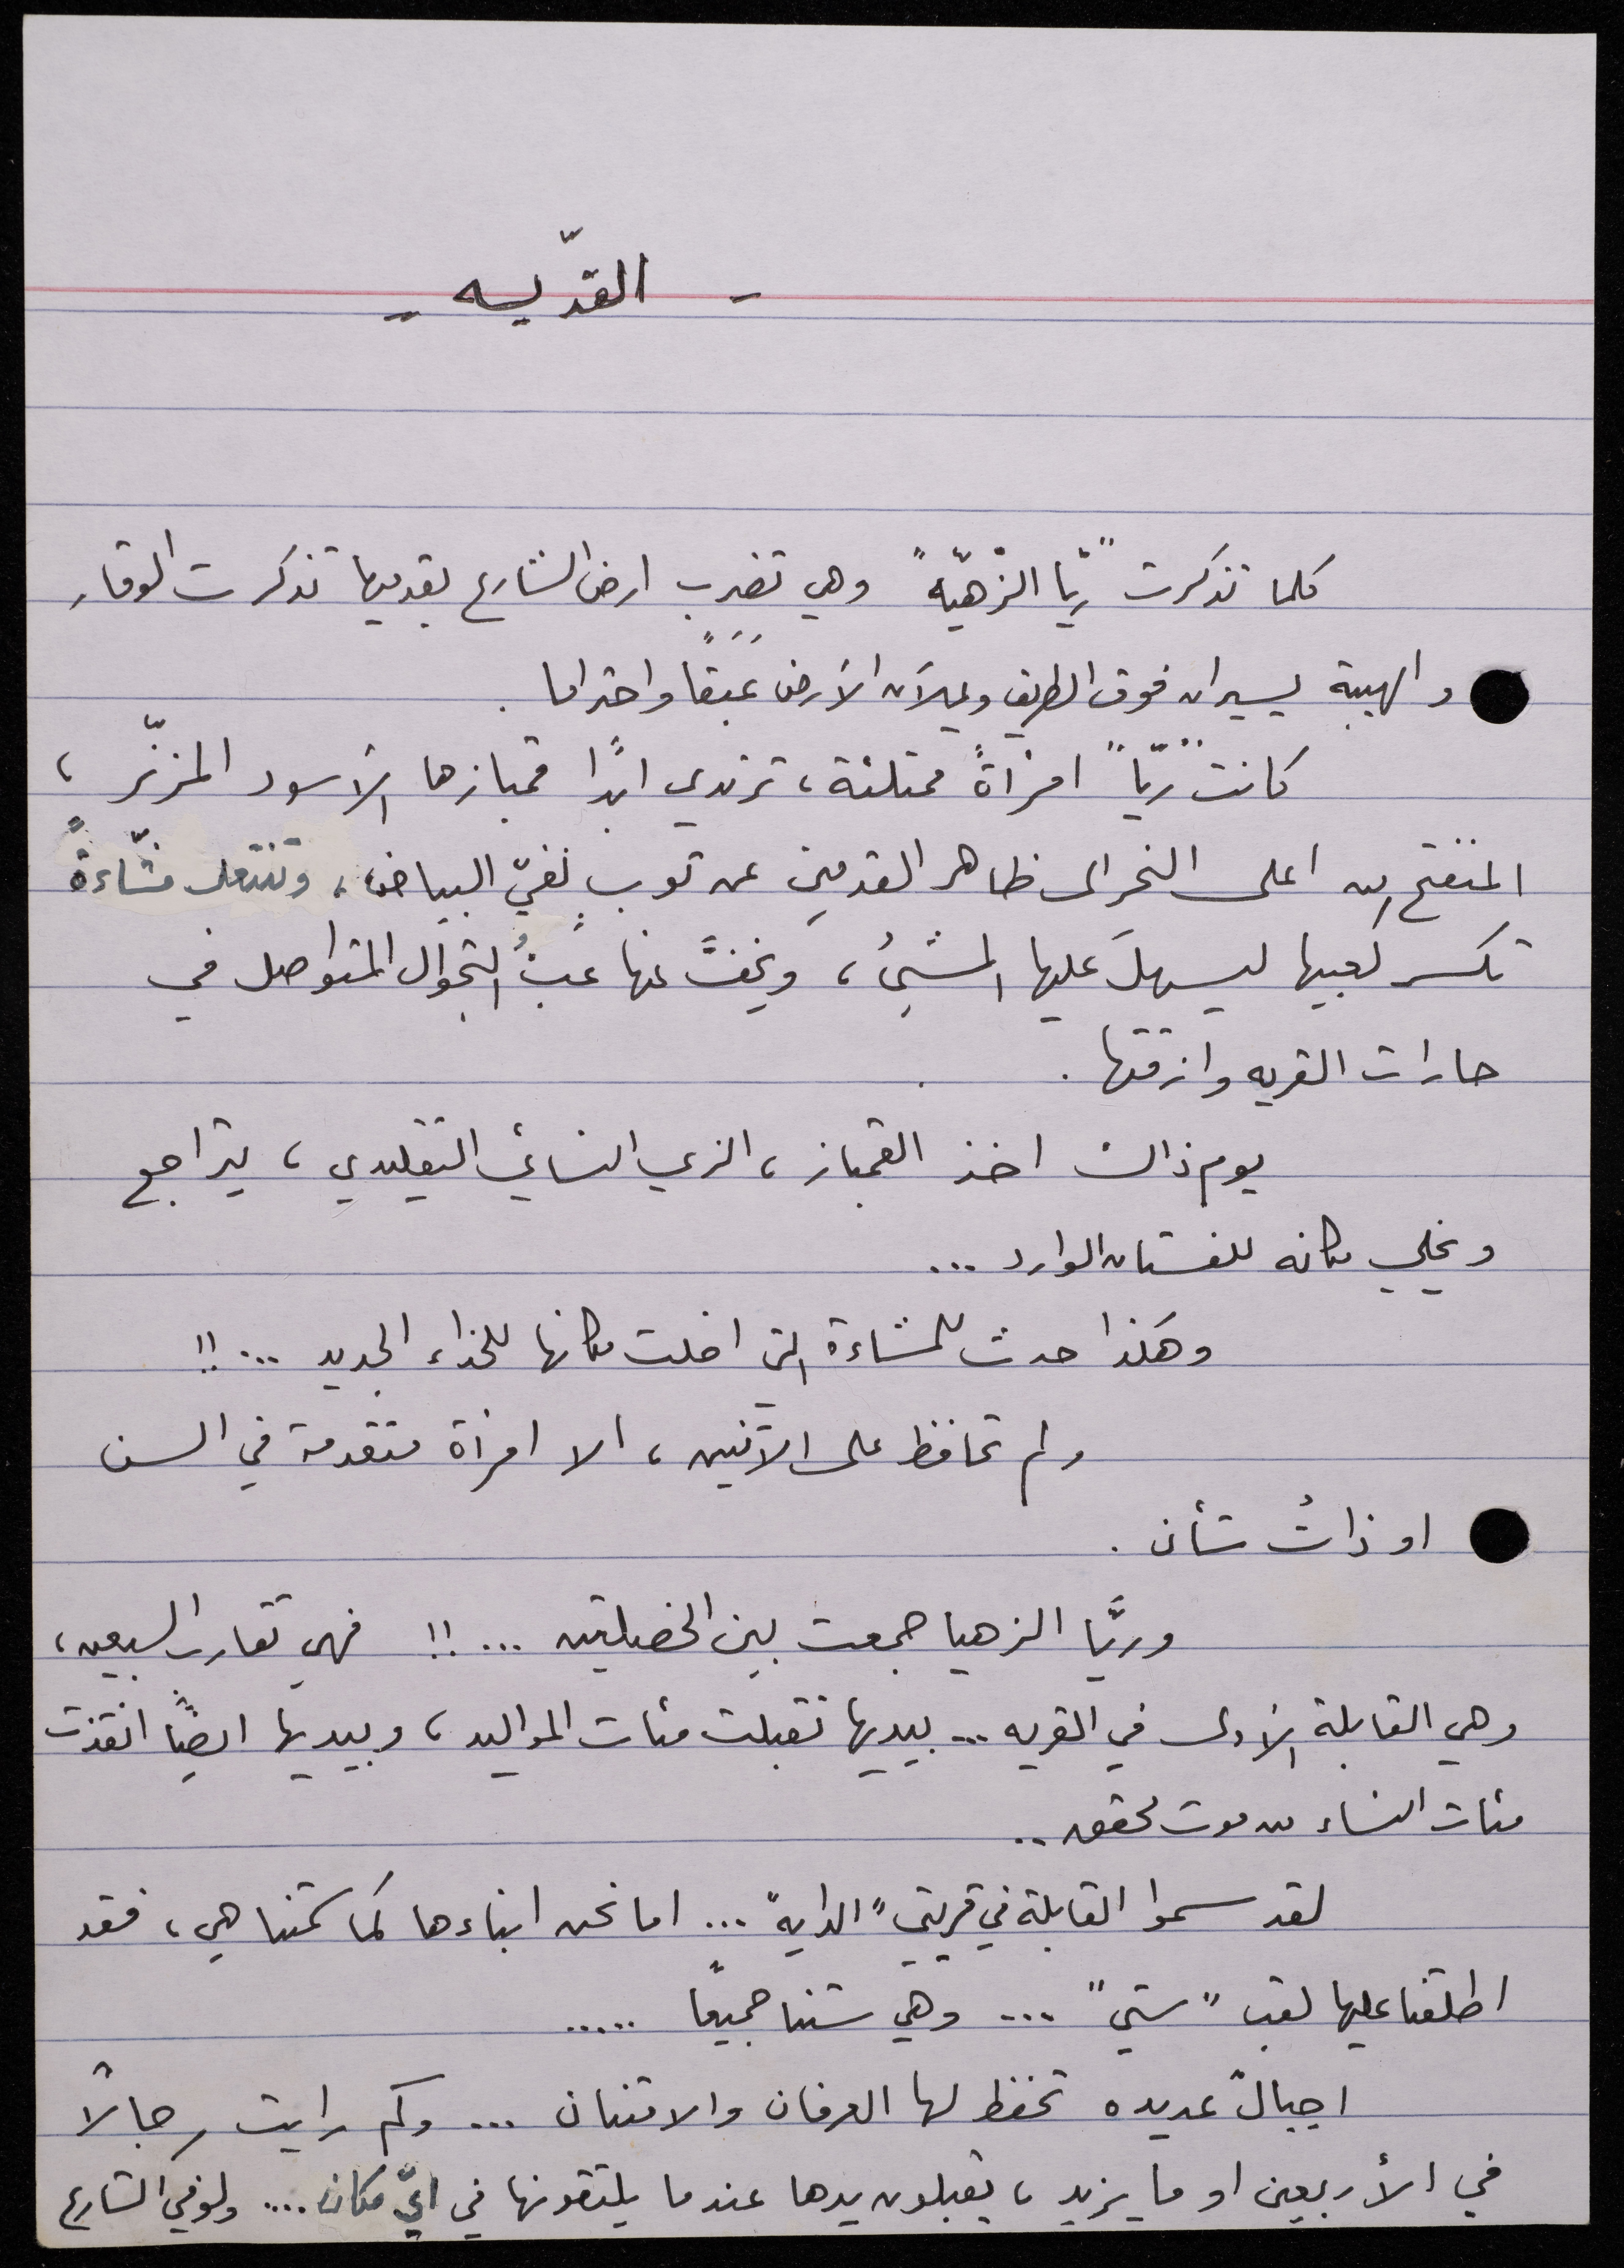 - القدّيسه -
كلما تذكرت "ريّا الزهيّه" وهي تضرب ارض الشارع بقدميها تذكرت الوقار
والهيبة يسيران فوق الطريق ويملآن الأرض عَبَقًا واحتراما .
كانت "ريّا" امرأةً ممتلئة، ترتدي ابدًا قمبازها الأسود المزنّر ،
المنفتح من اعلى النحر الى ظاهر القدمين عن ثوب نقيّ البياض، وتنتعل مشّاءةً
تكسر كعبيها ليسهلَ عليها المشيُ ، ويخفَّ عنها عبءُ التجوال المتواصل في
حارات القريه وازقتها .
يوم ذاك اخذ القمباز ، الزي النسائي التقليدي ، يتراجع
ويخلي مكانه للفستان الوارد ...
وهكذا حدث للمشاءة التي اخلت مكانها للحذاء الجديد ... !!
ولم تحافظ على الاثنين ، الا امرأة متقدمة في السن
او ذاتُ شأن .
وريَّا الزهيا جمعت بين الخصلتين ... !! فهي تقارب السبعين ،
وهي القابلة الأولى في القريه ... بيديها تقبلت مئات المواليد ، وبيديها ايضًا انقذت
مئات النساء من موت محقق ..
لقد سموا القابلة في قريتي "الدايه" ... اما نحن ابناءها كما سمّتنا هي ، فقد
اطلقنا عليها لقب "ستي" ... وهي ستنا جميعًا .....
اجيالٌ عديده تحفظ لها العرفان والامتنان ... وكم رايت رجالًا
في الأربعين او ما يزيد ، يقبلون يدها عندما يلتقونها في ايّ مكان .... ولو في الشارع